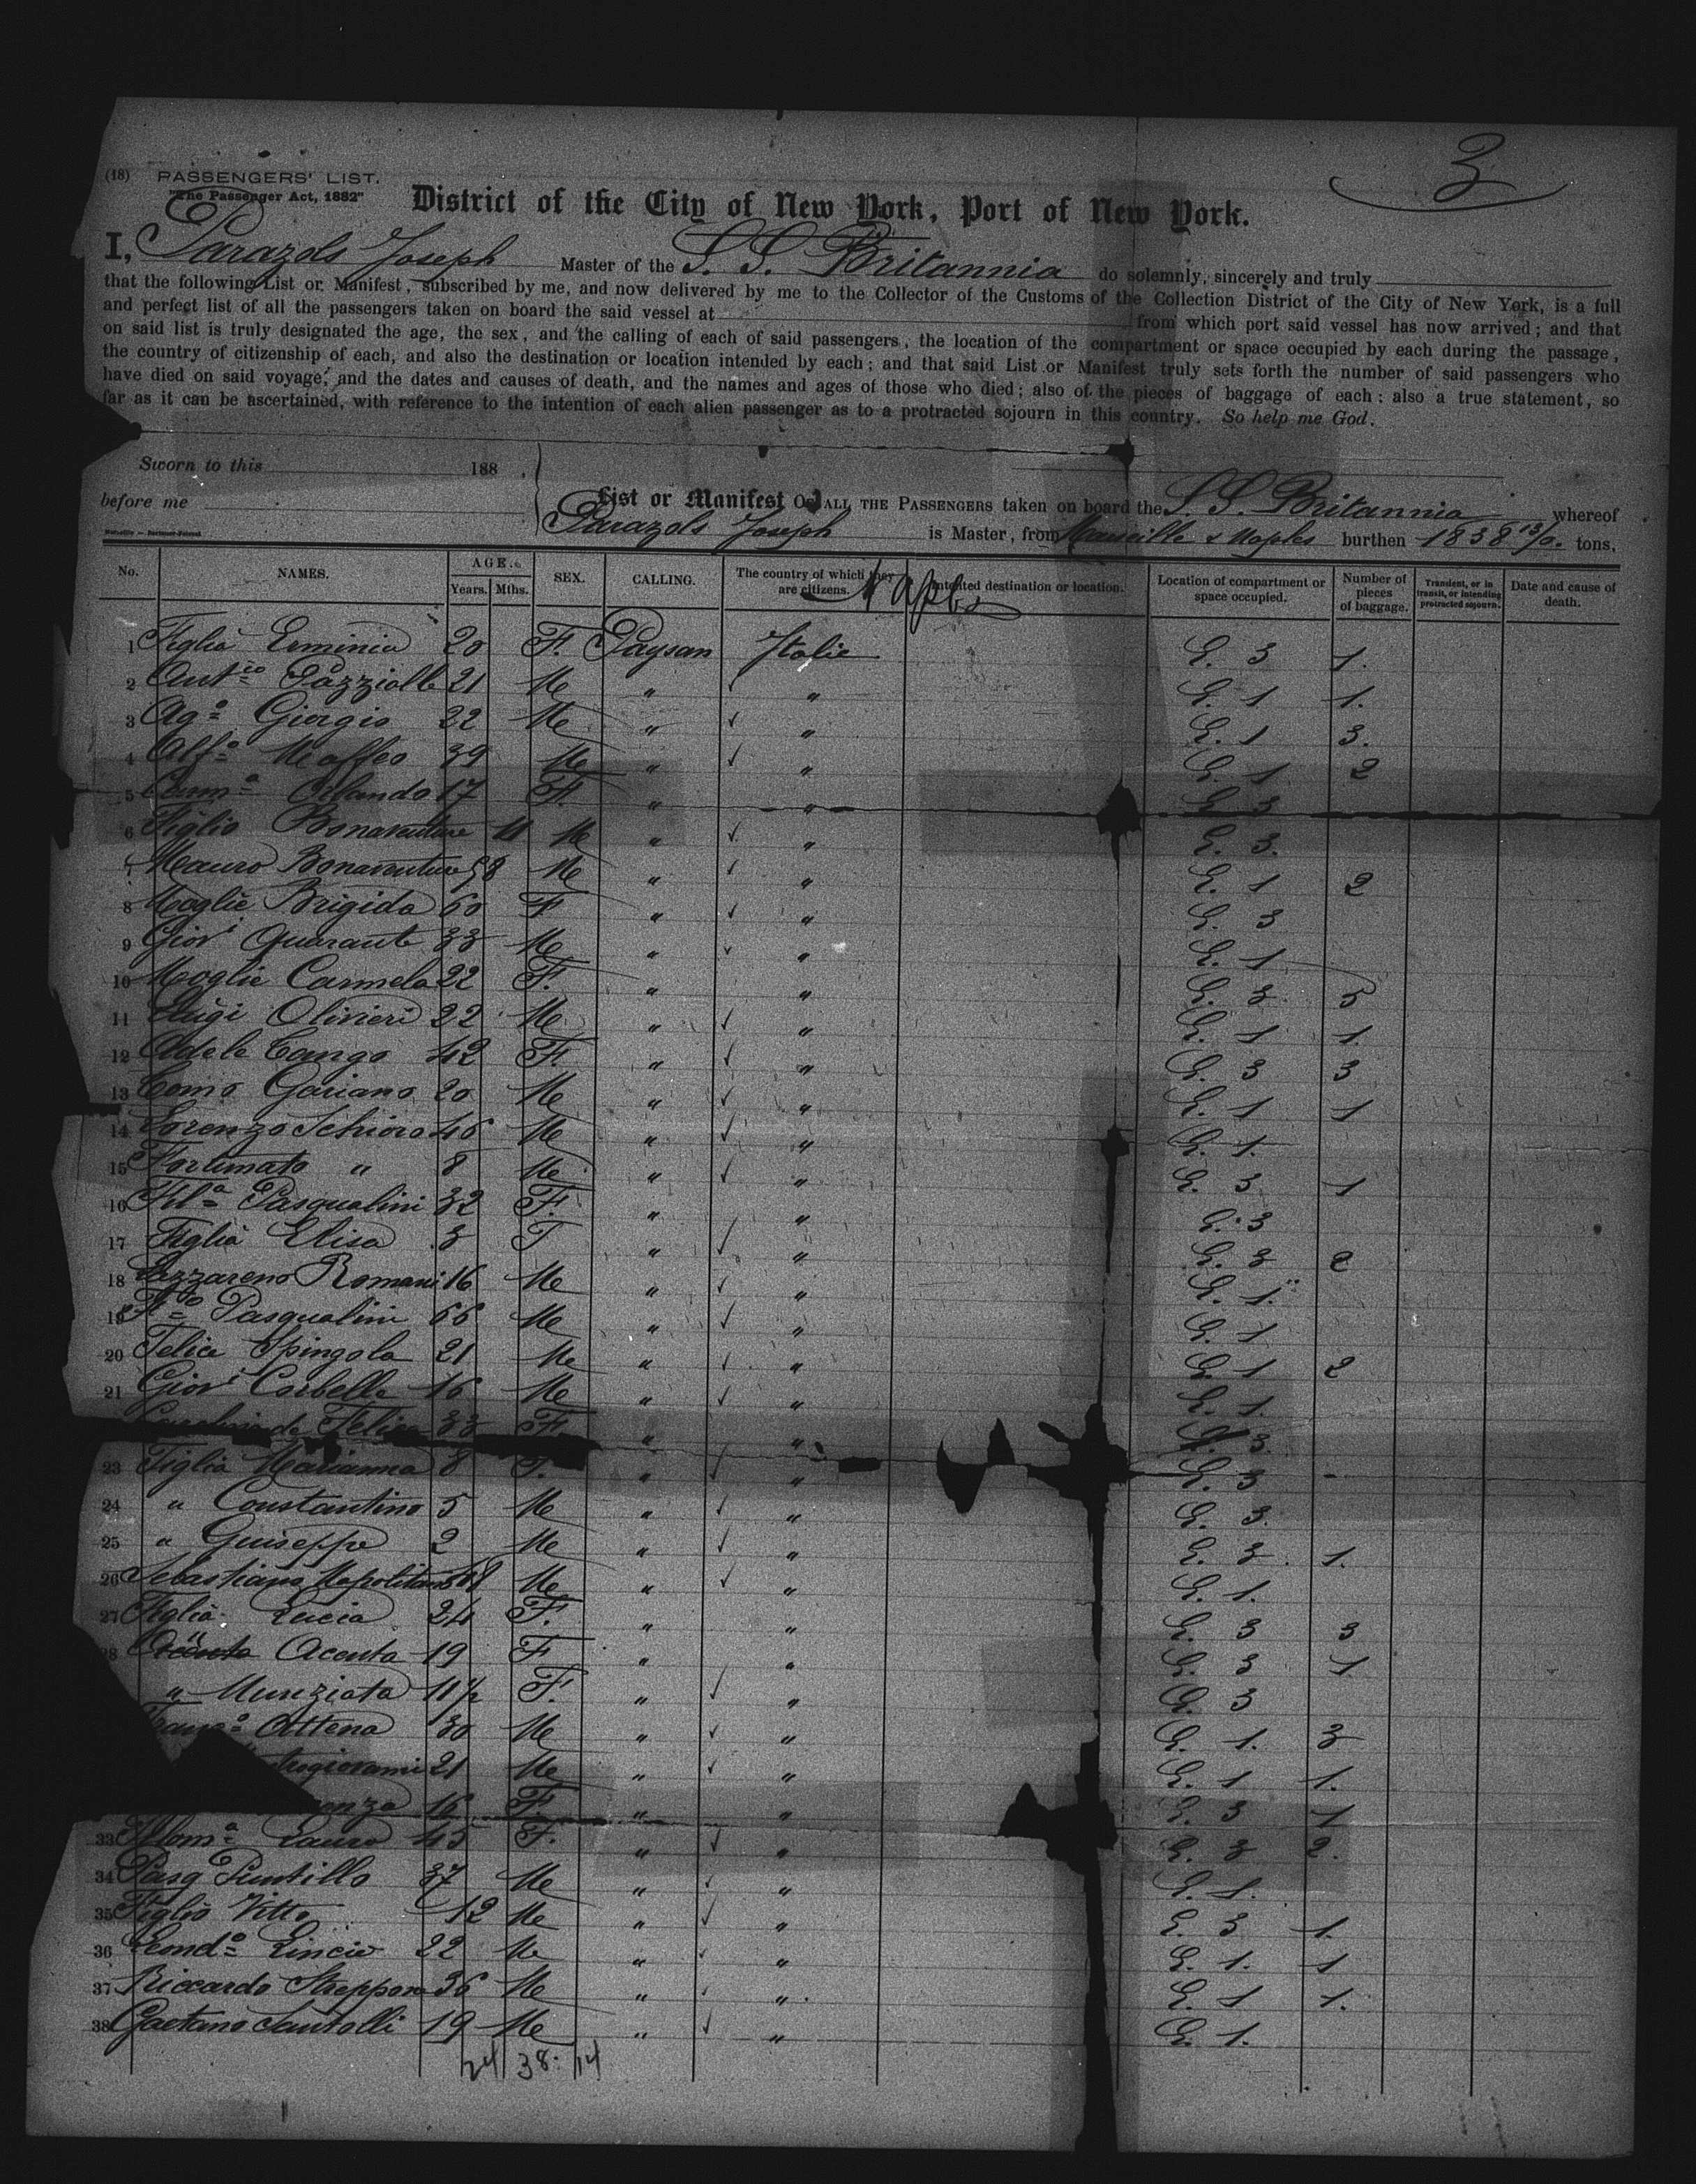 3
(18) PASSENGERS' LIST.
"The Passenger Act, 1882"
District of the City of New York, Port of New York.
I, Parazols Joseph Master of the S. S. Britannia do solemnly, sincerely and truly
that the following List or Manifest, subscribed by me, and now delivered by me to the Collector of the Customs of the Collection District of the City of New York, is a full
and perfect list of all the passengers taken on board the said vessel at from which port said vessel has now arrived; and that
on said list is truly designated the age, the sex, and the calling of each of said passengers, the location of the compartment or space occupied by each during the passage,
the country of citizenship of each, and also the destination or location intended by each; and that said List or Manifest truly sets forth the number of said passengers who
have died on said voyage, and the dates and causes of death, and the names and ages of those who died; also of the pieces of baggage of each: also a true statement, so
far as it can be ascertained, with reference to the intention of each alien passenger as to a protracted sojourn in this country. So help me God.
Sworn to this 188 .
before me
List or Manifest OF ALL THE PASSENGERS taken on board the S. S. Britannia whereof
Parazols Joseph is Master, from Marseille & Naples burthen 1838 13/0. tons.
No. NAMES. AGE. Years. Mths. SEX. CALLING. The country of which they are citizens. Intented destination or location. Location of compartment or space occupied. Number of pieces of baggage. Transient, or in transit, or intending protracted sojourn. Date and cause of death.
Naples
1 Figlia Erminia 20 F. Paysan Italie E. 3 1.
2 Antio Pazziolle 21 M " " E. 1 1.
3 Ago Giorgio 22 M " " E. 1 3.
4 Alfo Maffeo 39 M " " E. 1 2
5 Carma Orlando 17 F. " " E. 3
6 Figlio Bonaventure 11 M " " E. 3.
7 Mauro Bonaventure 58 M " " E. 1 2
8 Moglie Brigida 60 F " " E. 3
9 Giovi Quarante 33 M " " E. 1
10 Moglie Carmela 22 F. " " E. 3 5
11 Luigi Olivieri 22 M " " E. 1 1.
12 Adele Cango 42 F. " " E. 3 3
13 Como Gariano 20 M " " E. 1 1
14 Lorenzo Schiora 46 M " " E. 1.
15 Fortunato " 8 M " " E. 3 1
16 Fila Pasqualini 32 F. " " E. 3
17 Figlia Elisa 3 F " " E. 3 2
18 Lazzareno Romani 16 M " " E. 1.
19 Pasqualini 66 M " " E. 1
20 Felice Spingola 21 M " " E. 1 2
21 Giovi Corbelle 16 M " " E. 1.
de Felice 33 F. " " E. 3.
23 Figlia Marianna 8 F. " " E. 3 -
24 " Constantino 5 M " " E. 3.
25 " Guiseppe 2 M " " E. 3. 1.
26 Sebastiano Napolitano 68 M " " E. 1.
27 Figlia Lucia 24 F. " " E. 3 3
28 " Acenta 19 F " " E. 3 1
" Nunziata 11 1/2 F. " " E. 3
Franco Attena 30 M " " E. 1. 3
21 M " " E. 1 1.
16 F. " " E. 3 1
33 Filoma Lauro 45 F. " " E. 3 2.
34 Pasq Puntillo 37 M " " E. 1.
35 Figlio Vitto 12 M " " E. 3 1.
36 Leondo Lincio 22 M " " E. 1. 1
37 Riccardo Streppone 36 M " " E. 1 1.
38 Gaetano Santolli 19 M " " E. 1.
24 38. 14